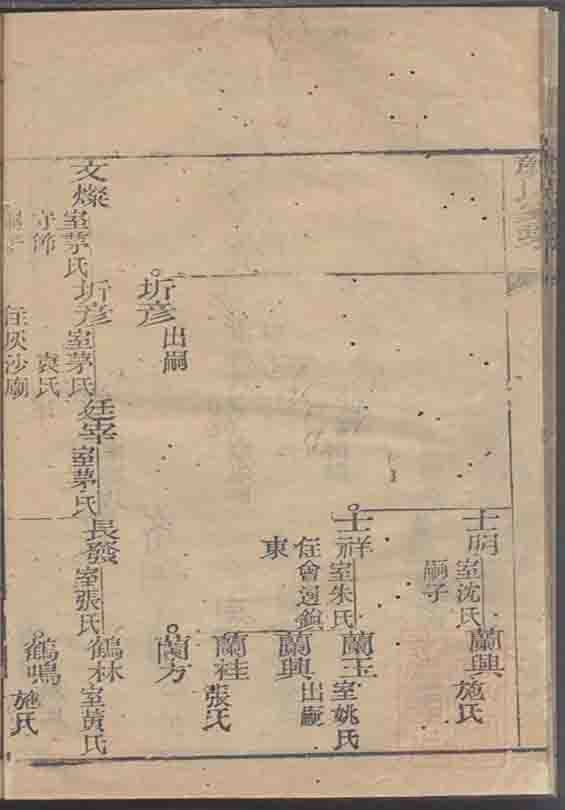 士明
室沈氏
嗣子
蘭興
施氏
士祥
室朱氏
住會通鎮
東
蘭玉
室姚氏
蘭興
出嗣
蘭桂
張氏
蘭方
圻彦
出嗣
文燦
室茅氏
守節
嗣子
圻彦
室茅氏
袁氏
住灰沙廟
廷宰
室茅氏
長發
室張氏
鶴林
室黃氏
鶴鳴
施氏